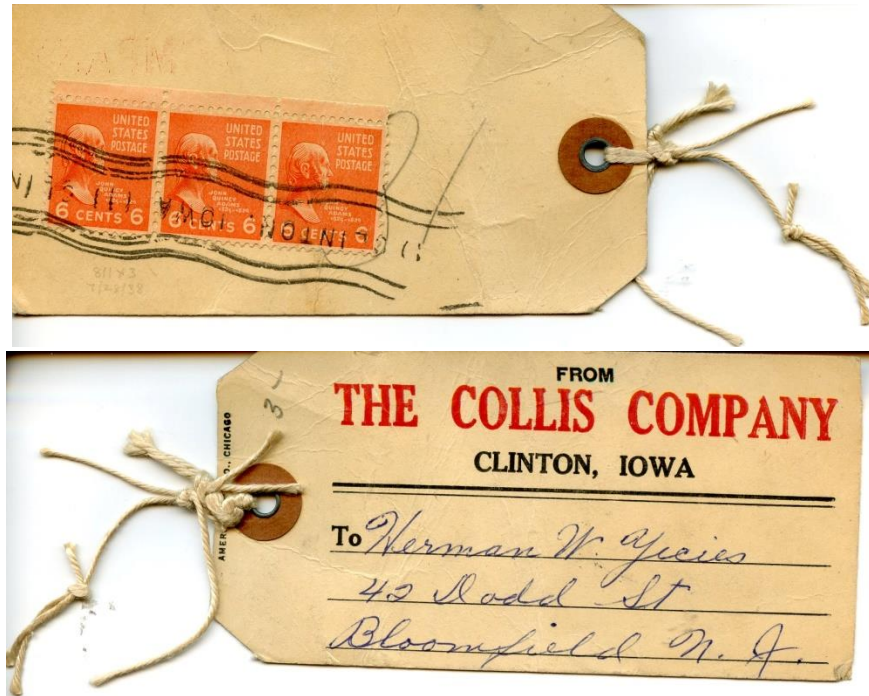 UNITED
STATES
POSTAGE
JOHN
QUINCY
ADAMS
6 CENTS 6
UNITED
STATES
POSTAGE
JOHN
QUINCY
ADAMS
6 CENTS 6
UNITED
STATES
POSTAGE
6 CENTS 6
CLINTON, IOWA
811x3
3-
CHICAGO
FROM
THE COLLIS COMPANY
CLINTON, IOWA
To Herman W. Yecies
42 Dodd St
Bloomfield N. J.